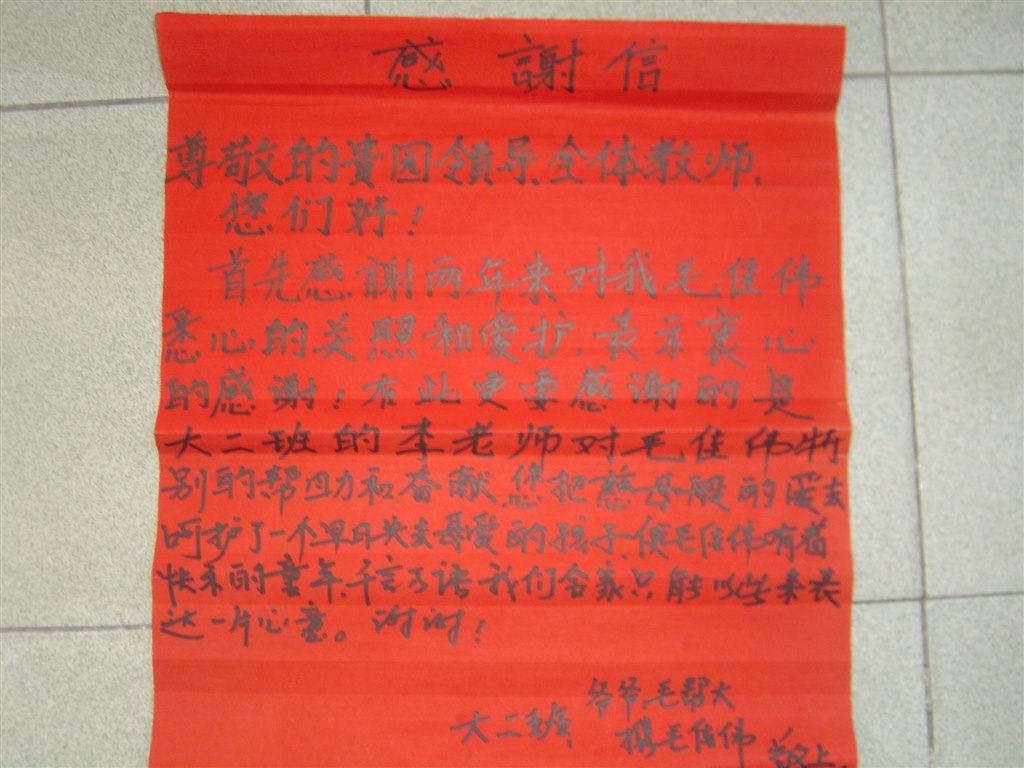 感謝信
尊敬的貴园領导、全体教师、
您们好！
首先感謝两年来对我毛佳伟
悉心的关照和爱护，表示衷心
的感谢！在此更要感谢的是
大二班的李老师对毛佳伟特
别的帮助和奋献，您把慈母般的爱去
呵护了一个早日失去母爱的孩子，使毛佳伟有着
快乐的童年，千言万语我们全家只能以此来表
达一片心意。谢谢！
爷爷毛帮大
大二班 携毛佳伟 敬上